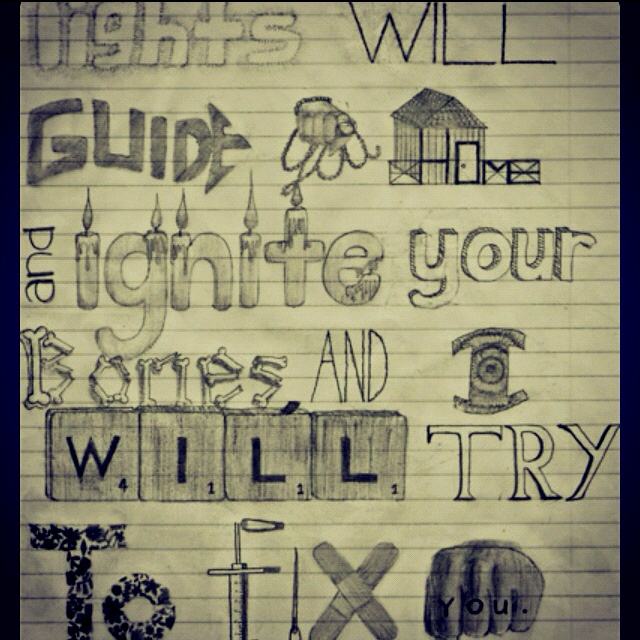 lights WILL
GUIDE HOME
and ignite your
Bones AND I
WILL TRY
4 1 1 1
To FIX You.